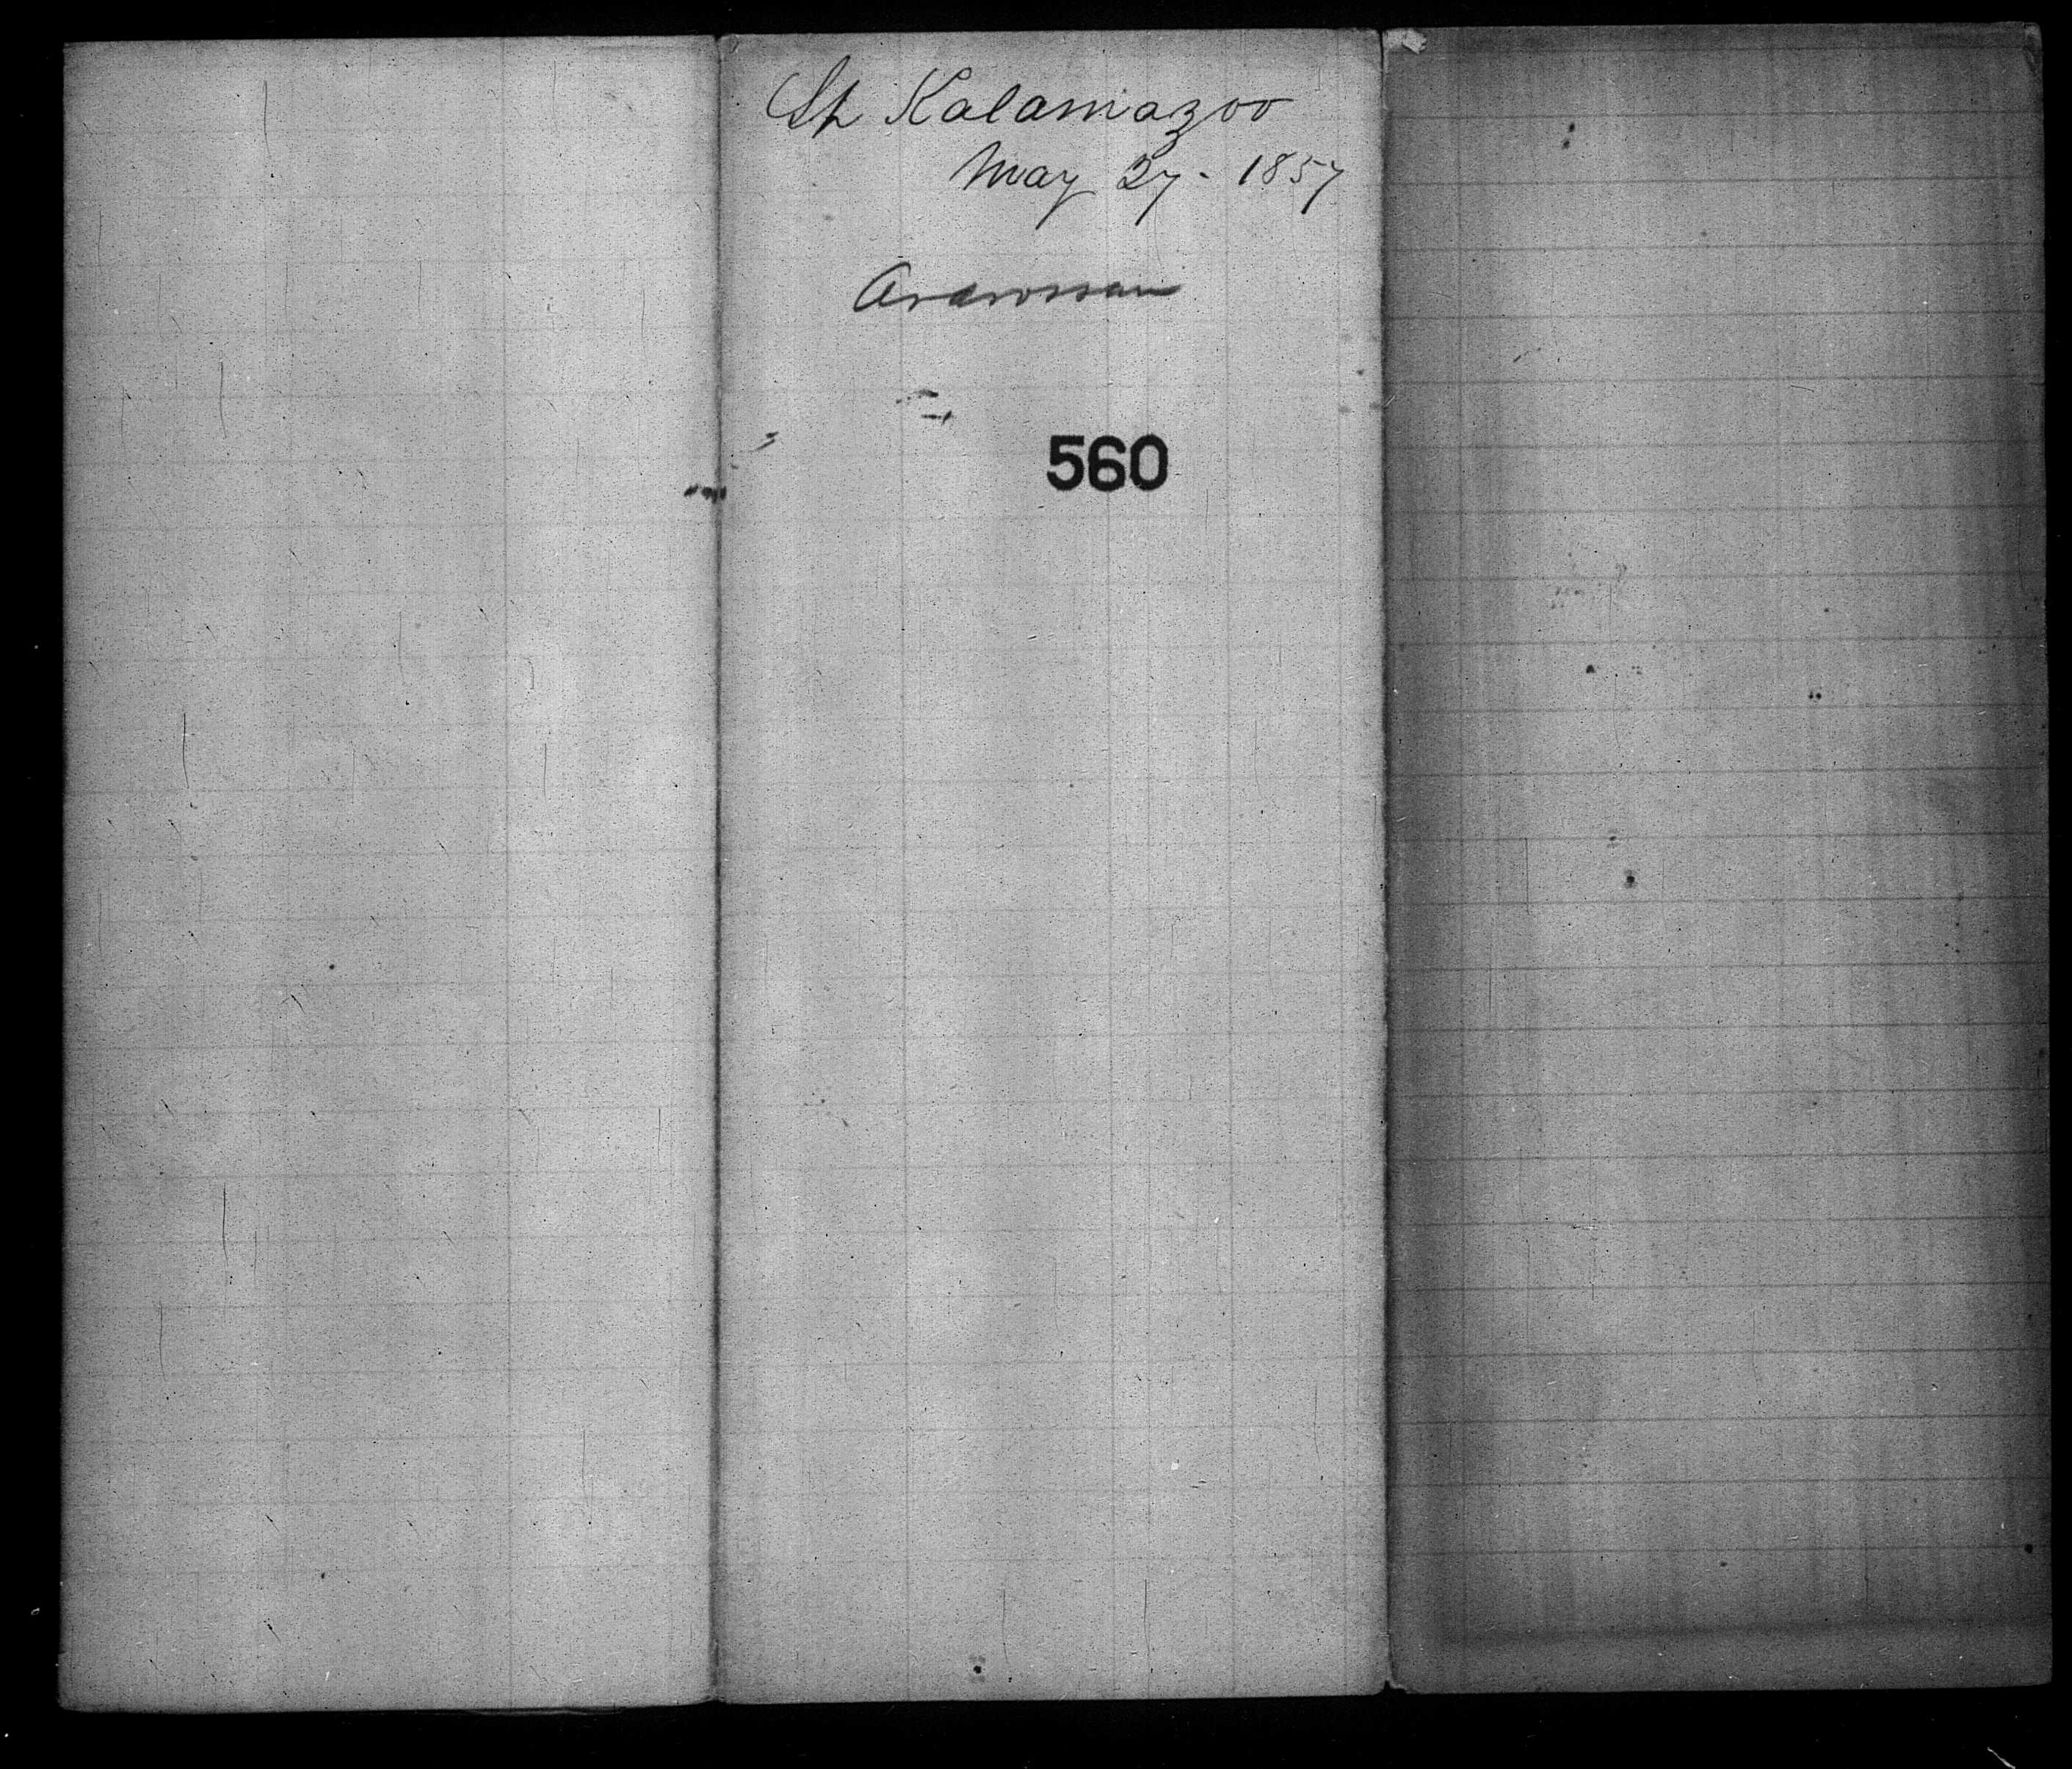 Sh Kalamazoo
May 27 - 1857
Ardrossan
560